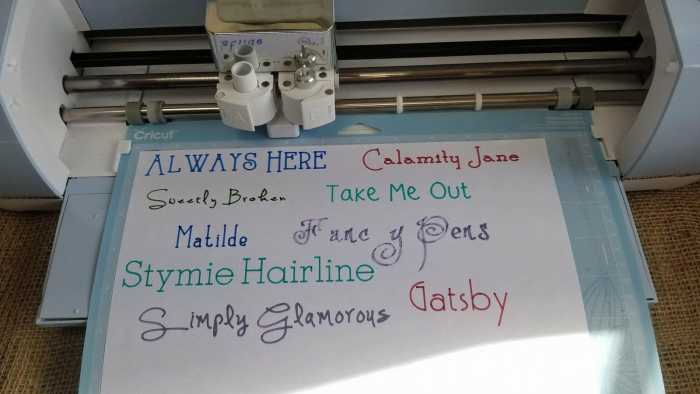 Cricut
ALWAYS HERE Calamity Jane
Sweetly Broken Take Me Out
Matilde Fancy Pens
Stymie Hairline
Simply Glamorous Gatsby